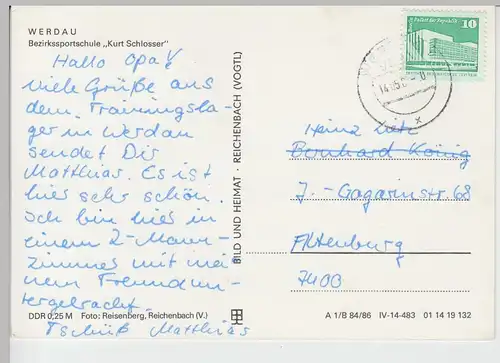 WERDAU
Bezirkssportschule „Kurt Schlosser"
Hallo Opa!
viele Grüße aus
dem Trainingsla-
ger in Werdau
sendet Dir
Matthias. Es ist
hier sehr schön.
Ich bin hier in
einem 2-Mann-
zimmer mit mei
nem Freund un-
tergebracht.
Tschüß Matthias
DDR 0,25 M Foto: Reisenberg, Reichenbach (V.)
BILD UND HEIMAT · REICHENBACH (VOGTL)
10
Palast der Republik
Heinz
Bernhard König
J.-Gagarinstr. 68
Altenburg
7400
A 1/B 84/86 IV-14-483 01 14 19 132